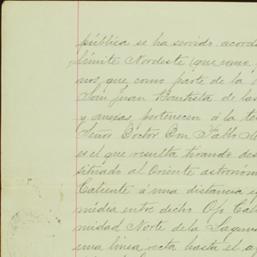 pública se ha servido acorda
límite Nordeste (que
nos, que como parte de la
San Juan Bautista de las
y anexas, pertenecen á la te
Señor Doctor Don Pablo
es el que resulta tirando des
situado al Oriente astronóm
Caliente á una distancia
media entre dicho Ojo Cali
midad Norte de la Laguna
una línea recta hasta el